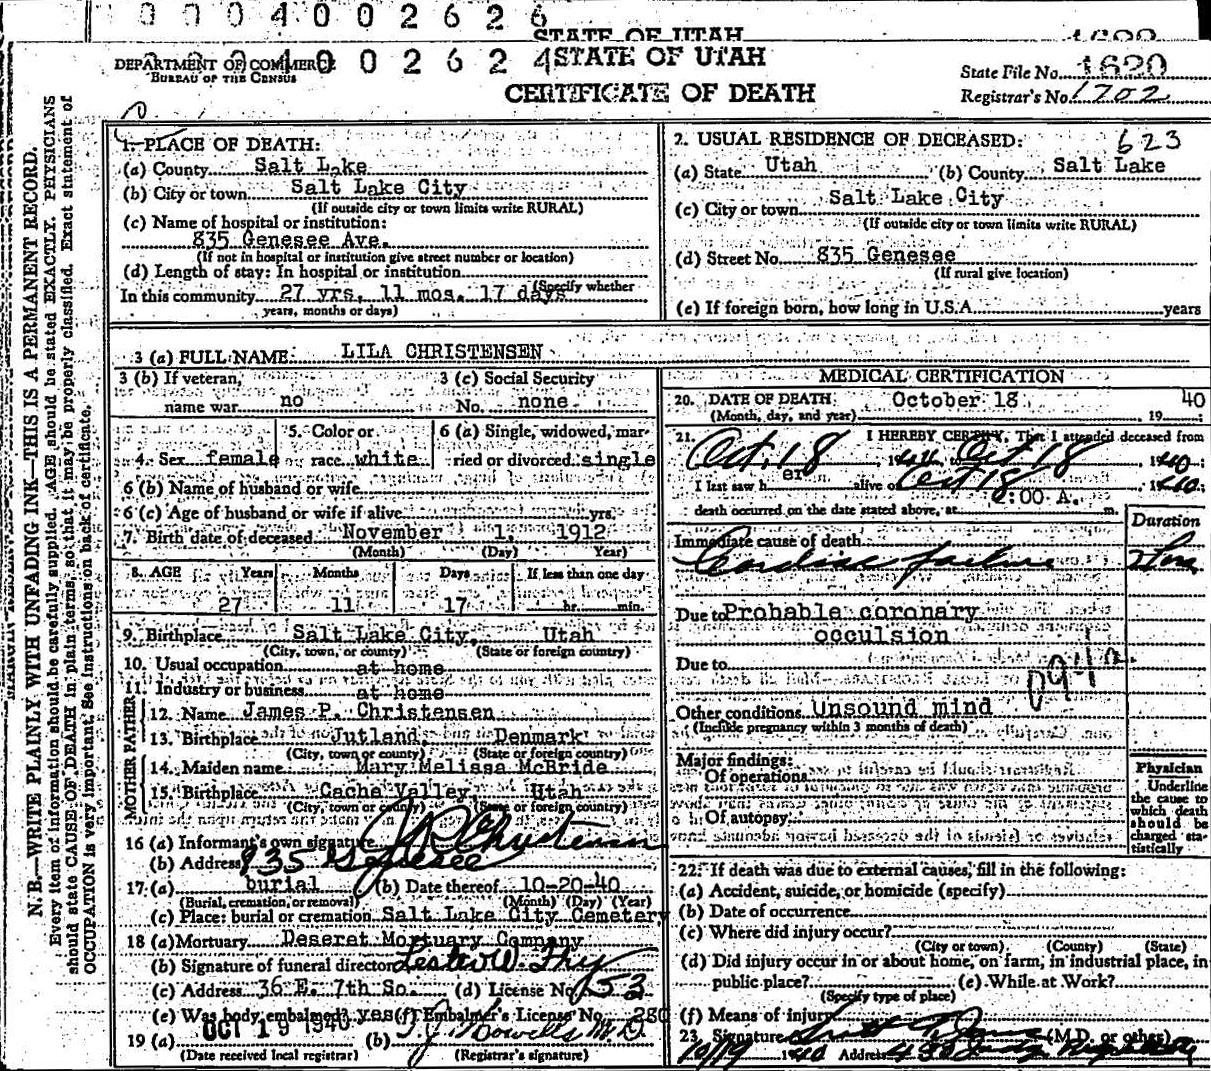 0 0 0 4 0 0 2 6 2 6
STATE OF UTAH
DEPARTMENT OF COMMERCE
BUREAU OF THE CENSUS
0 0 2 6 2 4
STATE OF UTAH
CERTIFICATE OF DEATH
State File No. 1620
Registrar's No. 1702
N. B.—WRITE PLAINLY WITH UNFADING INK—THIS IS A PERMANENT RECORD.
Every item of information should be carefully supplied. AGE should be stated EXACTLY. PHYSICIANS
should state CAUSE OF DEATH in plain terms, so that it may be properly classified. Exact statement of
OCCUPATION is very important. See instructions on back of certificate.
1. PLACE OF DEATH:
(a) County Salt Lake
(b) City or town Salt Lake City
(If outside city or town limits write RURAL)
(c) Name of hospital or institution:
835 Genesee Ave.
(If not in hospital or institution give street number or location)
(d) Length of stay: In hospital or institution
(Specify whether
In this community 27 yrs. 11 mos. 17 days
years, months or days)
2. USUAL RESIDENCE OF DECEASED: 623
(a) State Utah (b) County Salt Lake
(c) City or town Salt Lake City
(If outside city or town limits write RURAL)
(d) Street No. 835 Genesee
(If rural give location)
(e) If foreign born, how long in U.S.A. years
3 (a) FULL NAME: LILA CHRISTENSEN
3 (b) If veteran, name war no
3 (c) Social Security No. none
4. Sex female
5. Color or race white
6 (a) Single, widowed, married or divorced single
6 (b) Name of husband or wife
6 (c) Age of husband or wife if alive yrs.
7. Birth date of deceased November 1, 1912
(Month) (Day) Year)
8. AGE Years Months Days If less than one day
27 11 17 hr. min.
9. Birthplace Salt Lake City, Utah
(City, town, or county) (State or foreign country)
10. Usual occupation at home
11. Industry or business at home
FATHER
12. Name James P. Christensen
13. Birthplace Jutland, Denmark
(City, town or county) (State or foreign country)
MOTHER
14. Maiden name Mary Melissa McBride
15. Birthplace Cache Valley, Utah
(City, town or county) (State or foreign country)
16 (a) Informant's own signature J P Christensen
(b) Address 835 Genesee
17. (a) burial (b) Date thereof 10-20-40
(Burial, cremation, or removal) (Month) (Day) (Year)
(c) Place: burial or cremation Salt Lake City Cemetery
18 (a) Mortuary Deseret Mortuary Company
(b) Signature of funeral director
(c) Address 36 E. 7th So. (d) License No. 153
(e) Was body embalmed? yes (f) Embalmer's License No. 280
19 (a) OCT 19 1940 (b) T. J. Howells M.D.
(Date received local registrar) (Registrar's signature)
MEDICAL CERTIFICATION
20. DATE OF DEATH: October 18, 1940
(Month, day, and year)
21. I HEREBY CERTIFY, That I attended deceased from
Oct. 18, 1940 to Oct 18, 1940
I last saw her alive on Oct 18, 1940
death occurred on the date stated above, at 8:00 A. m.
Duration
Immediate cause of death
Cardiac failure
Due to Probable coronary
occulsion
Due to
094b
Other conditions Unsound mind
(Include pregnancy within 3 months of death)
Major findings:
Of operations
Of autopsy
Physician
Underline
the cause to
which death
should be
charged sta-
tistically
22. If death was due to external causes, fill in the following:
(a) Accident, suicide, or homicide (specify)
(b) Date of occurrence
(c) Where did injury occur?
(City or town) (County) (State)
(d) Did injury occur in or about home, on farm, in industrial place, in
public place? (e) While at Work?
(Specify type of place)
(f) Means of injury
23. Signature (M.D. or other)
10/19 1940 Address